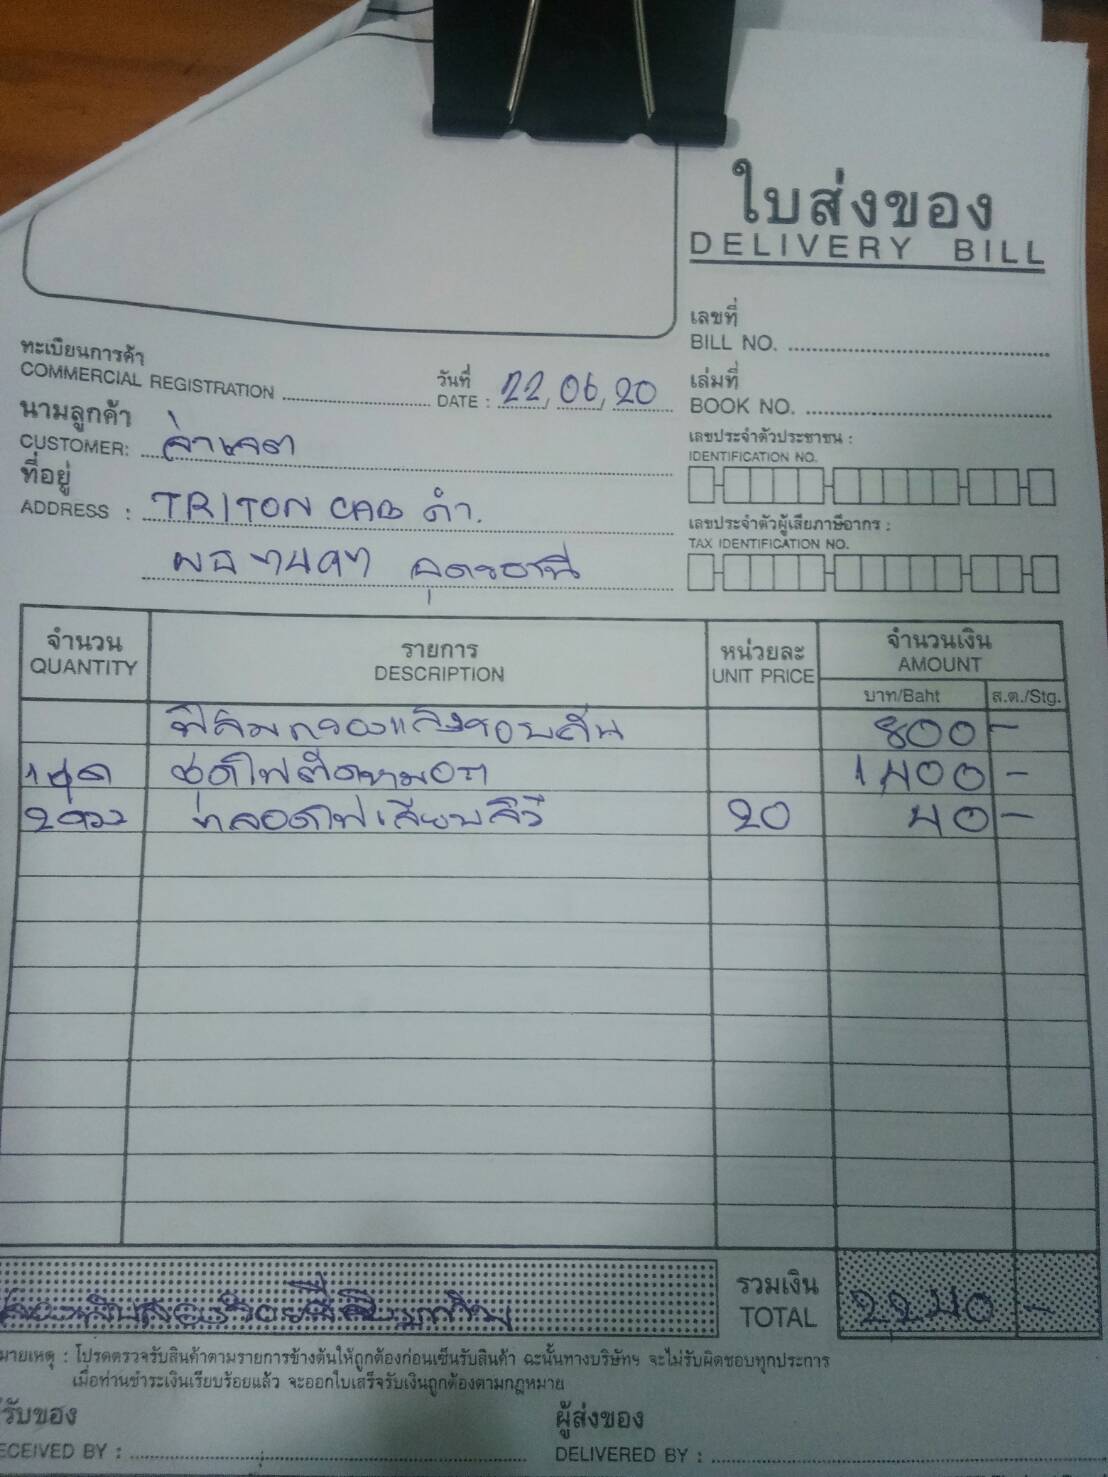 ใบส่งของ
DELIVERY BILL
เลขที่
BILL NO.
ทะเบียนการค้า
COMMERCIAL REGISTRATION
วันที่
DATE : 22, 06, 20
เล่มที่
BOOK NO.
นามลูกค้า
CUSTOMER: จ่าเจต
เลขประจำตัวประชาชน :
IDENTIFICATION NO.
ที่อยู่
ADDRESS : TRITON CAB ดำ.
เลขประจำตัวผู้เสียภาษีอากร :
TAX IDENTIFICATION NO.
อุดรธานี
จำนวน
QUANTITY
รายการ
DESCRIPTION
หน่วยละ
UNIT PRICE
จำนวนเงิน
AMOUNT
บาท/Baht ส.ต./Stg.
ฟิล์มกรองแสงรอบคัน 800 -
1 ชุด ชุดไฟตัดหมอก 1400 -
2 ดวง หลอดไฟเสียบ 20 40 -
สองพันสองร้อยสี่สิบบาท
รวมเงิน
TOTAL 2240 -
มายเหตุ : โปรดตรวจรับสินค้าตามรายการข้างต้นให้ถูกต้องก่อนเซ็นรับสินค้า ฉะนั้นทางบริษัทฯ จะไม่รับผิดชอบทุกประการ
เมื่อท่านชำระเงินเรียบร้อยแล้ว จะออกใบเสร็จรับเงินถูกต้องตามกฎหมาย
รับของ
ECEIVED BY :
ผู้ส่งของ
DELIVERED BY :